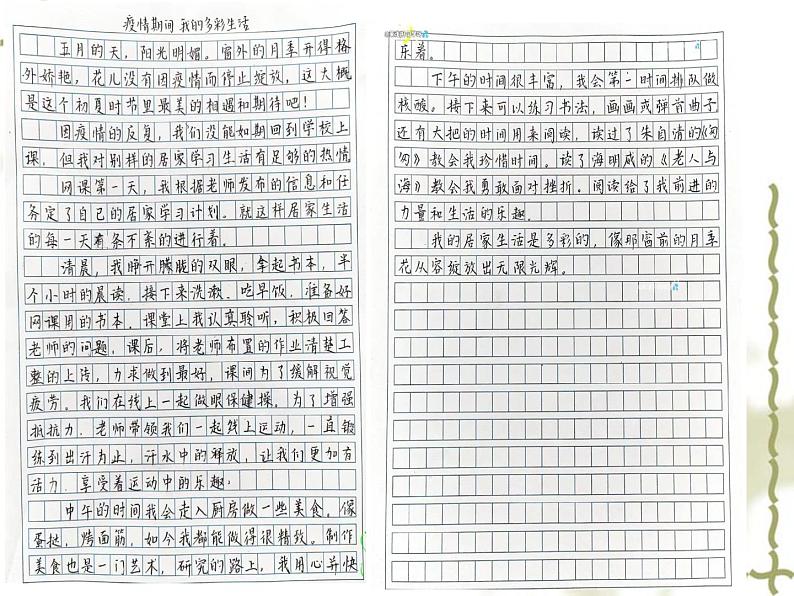 疫情期间 我的多彩生活
五月的天，阳光明媚。窗外的月季开得格
外娇艳，花儿没有因疫情而停止绽放，这大概
是这个初夏时节里最美的相遇和期待吧！
因疫情的反复，我们没能如期回到学校上
课，但我对别样的居家学习生活有足够的热情
网课第一天，我根据老师发布的信息和任
务定了自己的居家学习计划。就这样居家生活
的每一天有条不紊的进行着。
清晨，我睁开朦胧的双眼，拿起书本，半
个小时的晨读，接下来洗漱、吃早饭、准备好
网课用的书本。课堂上我认真聆听，积极回答
老师的问题，课后，将老师布置的作业清楚工
整的上传，力求做到最好，课间为了缓解视觉
疲劳。我们在线上一起做眼保健操，为了增强
抵抗力，老师带领我们一起线上运动，一直锻
练到出汗为止，汗水中的释放，让我们更加有
活力，享受着运动中的乐趣；
中午的时间我会走入厨房做一些美食。像
蛋挞，烤面筋，如今我都能做得很精致。制作
美食也是一门艺术，研究的路上，我用心并快
乐着。
下午的时间很丰富，我会第一时间排队做
核酸。接下来可以练习书法，画画或弹首曲子
还有大把的时间用来阅读，读过了朱自清的《匆
匆》教会我珍惜时间。读了海明威的《老人与
海》教会我勇敢面对挫折。阅读给了我前进的
力量和生活的乐趣。
我的居家生活是多彩的，像那窗前的月季
花从容绽放出无限光辉。